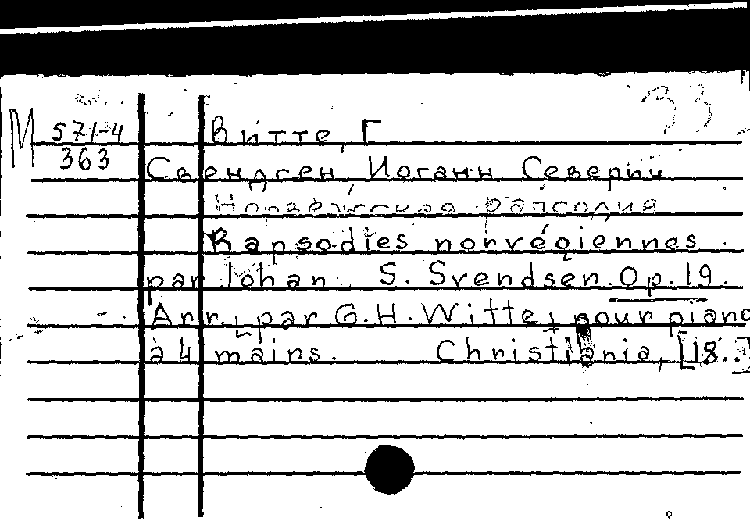 33
M 571-4 Витте, Г
363 Свендсен, Иоганн Северин
Норвежская рапсодия
Rapsodies norvégiennes.
par Johan S. Svendsen Op. 19.
Arr. par G.H. Witte, pour piano
à 4 mains. Christiania, [18..]